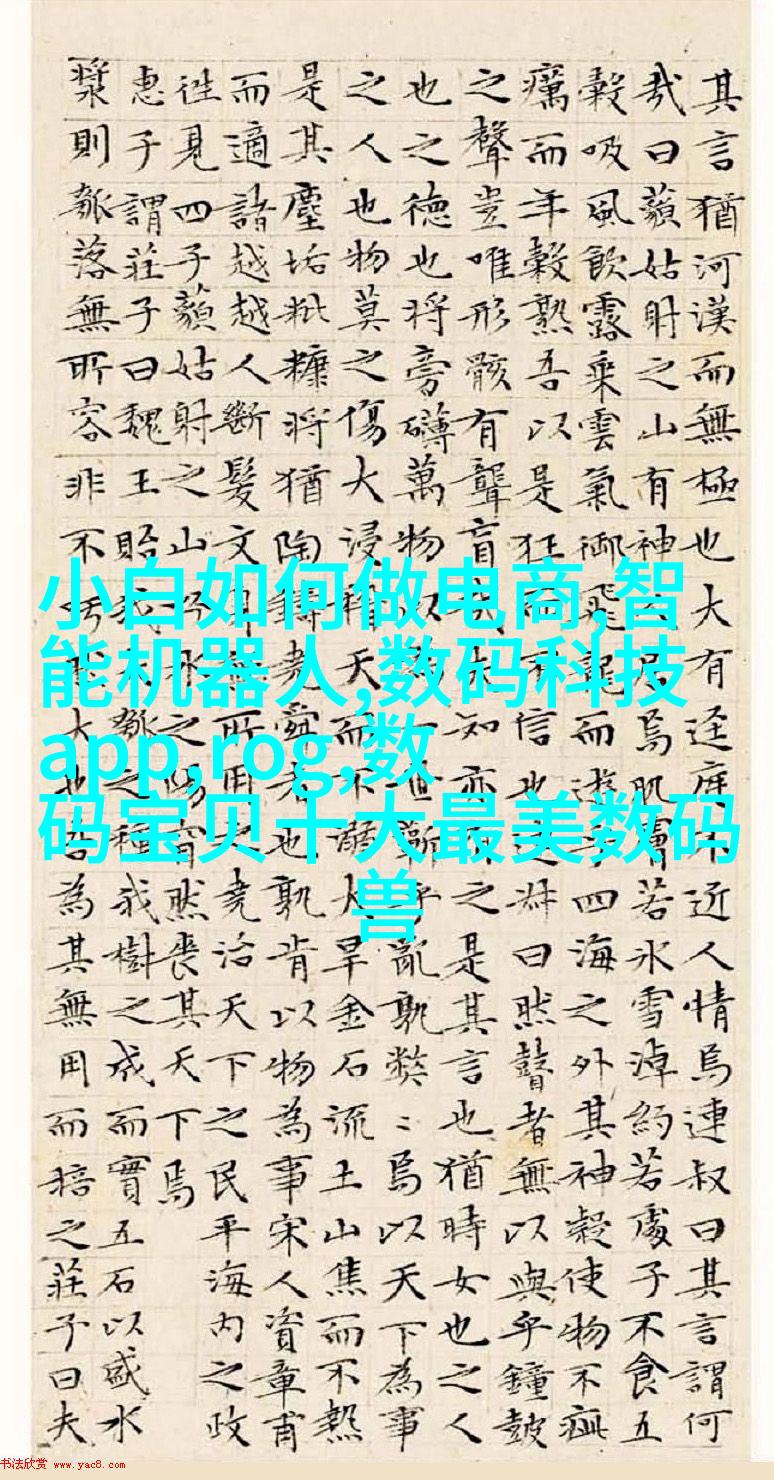 小白如何做电商,智
能机器人,数码科技
app,rog,数
码宝贝十大最美数码
兽
其言猶河漢而無極也大有迳庭不近人情焉連叔曰其言謂何
哉曰藐姑射之山有神人居焉肌膚若氷雪淖約若處子不食五
穀吸風飲露乘雲氣御飛龍而遊乎四海之外其神凝使物不疵
癘而年穀熟吾以是狂而不信也連叔曰然瞽者無以與乎鐘鼓
之聲豈唯形骸有聾盲哉夫知亦有之是其言也猶時女也之人
也之德也将旁礴萬物以為一世蘄乎亂孰弊〻焉以天下為事
之人也物莫之傷大浸稽天而不溺大旱金石流土山焦而不熱
是其塵垢粃糠将猶陶鑄堯舜者也孰肯以物為事宋人資章甫
而適諸越越人斷髮文身無所用之堯治天下之民平海内之政
徃見四子藐姑射之山汾水之陽窅然喪其天下焉
惠子謂莊子曰魏王貽我大瓠之種我樹之成而實五石以盛水
漿則瓠落無所容非不呺然大也吾為其無用而掊之莊子曰夫
书法欣赏 www.yac8.com